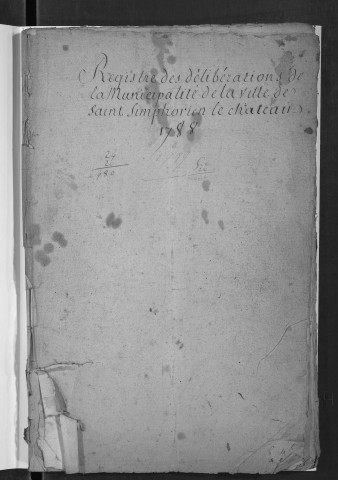 Registre des délibérations de
la Municipalité de la ville de
saint simphorien le chateau
1788